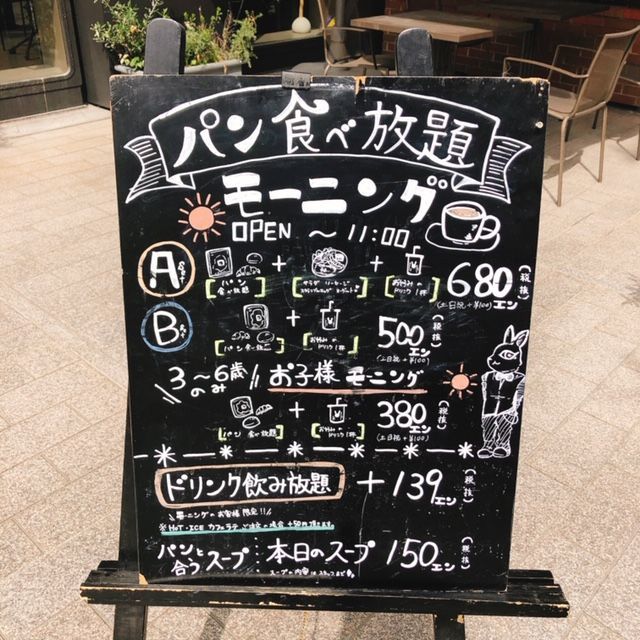 パン食べ放題
モーニング
OPEN ～ 11:00
A セット + + 680エン (税抜)
[パン食べ放題] [サラダ ソーセージ スクランブルエッグ ヨーグルト] [お好みのドリンク1杯] (土日祝+¥100)
B セット + 500エン (税抜)
[パン食べ放題] [お好みのドリンク1杯] (土日祝+¥100)
\\3～6歳のみ// お子様モーニング
+ 380エン (税抜)
[パン食べ放題] [お好みのドリンク1杯] (土日祝+¥100)
ドリンク飲み放題 +139エン (税抜)
\モーニングのお客様限定!!/
※HOT・ICE カフェラテご注文の場合+50円頂きます。
パンと合うスープ : 本日のスープ 150エン (税抜)
スープの内容は